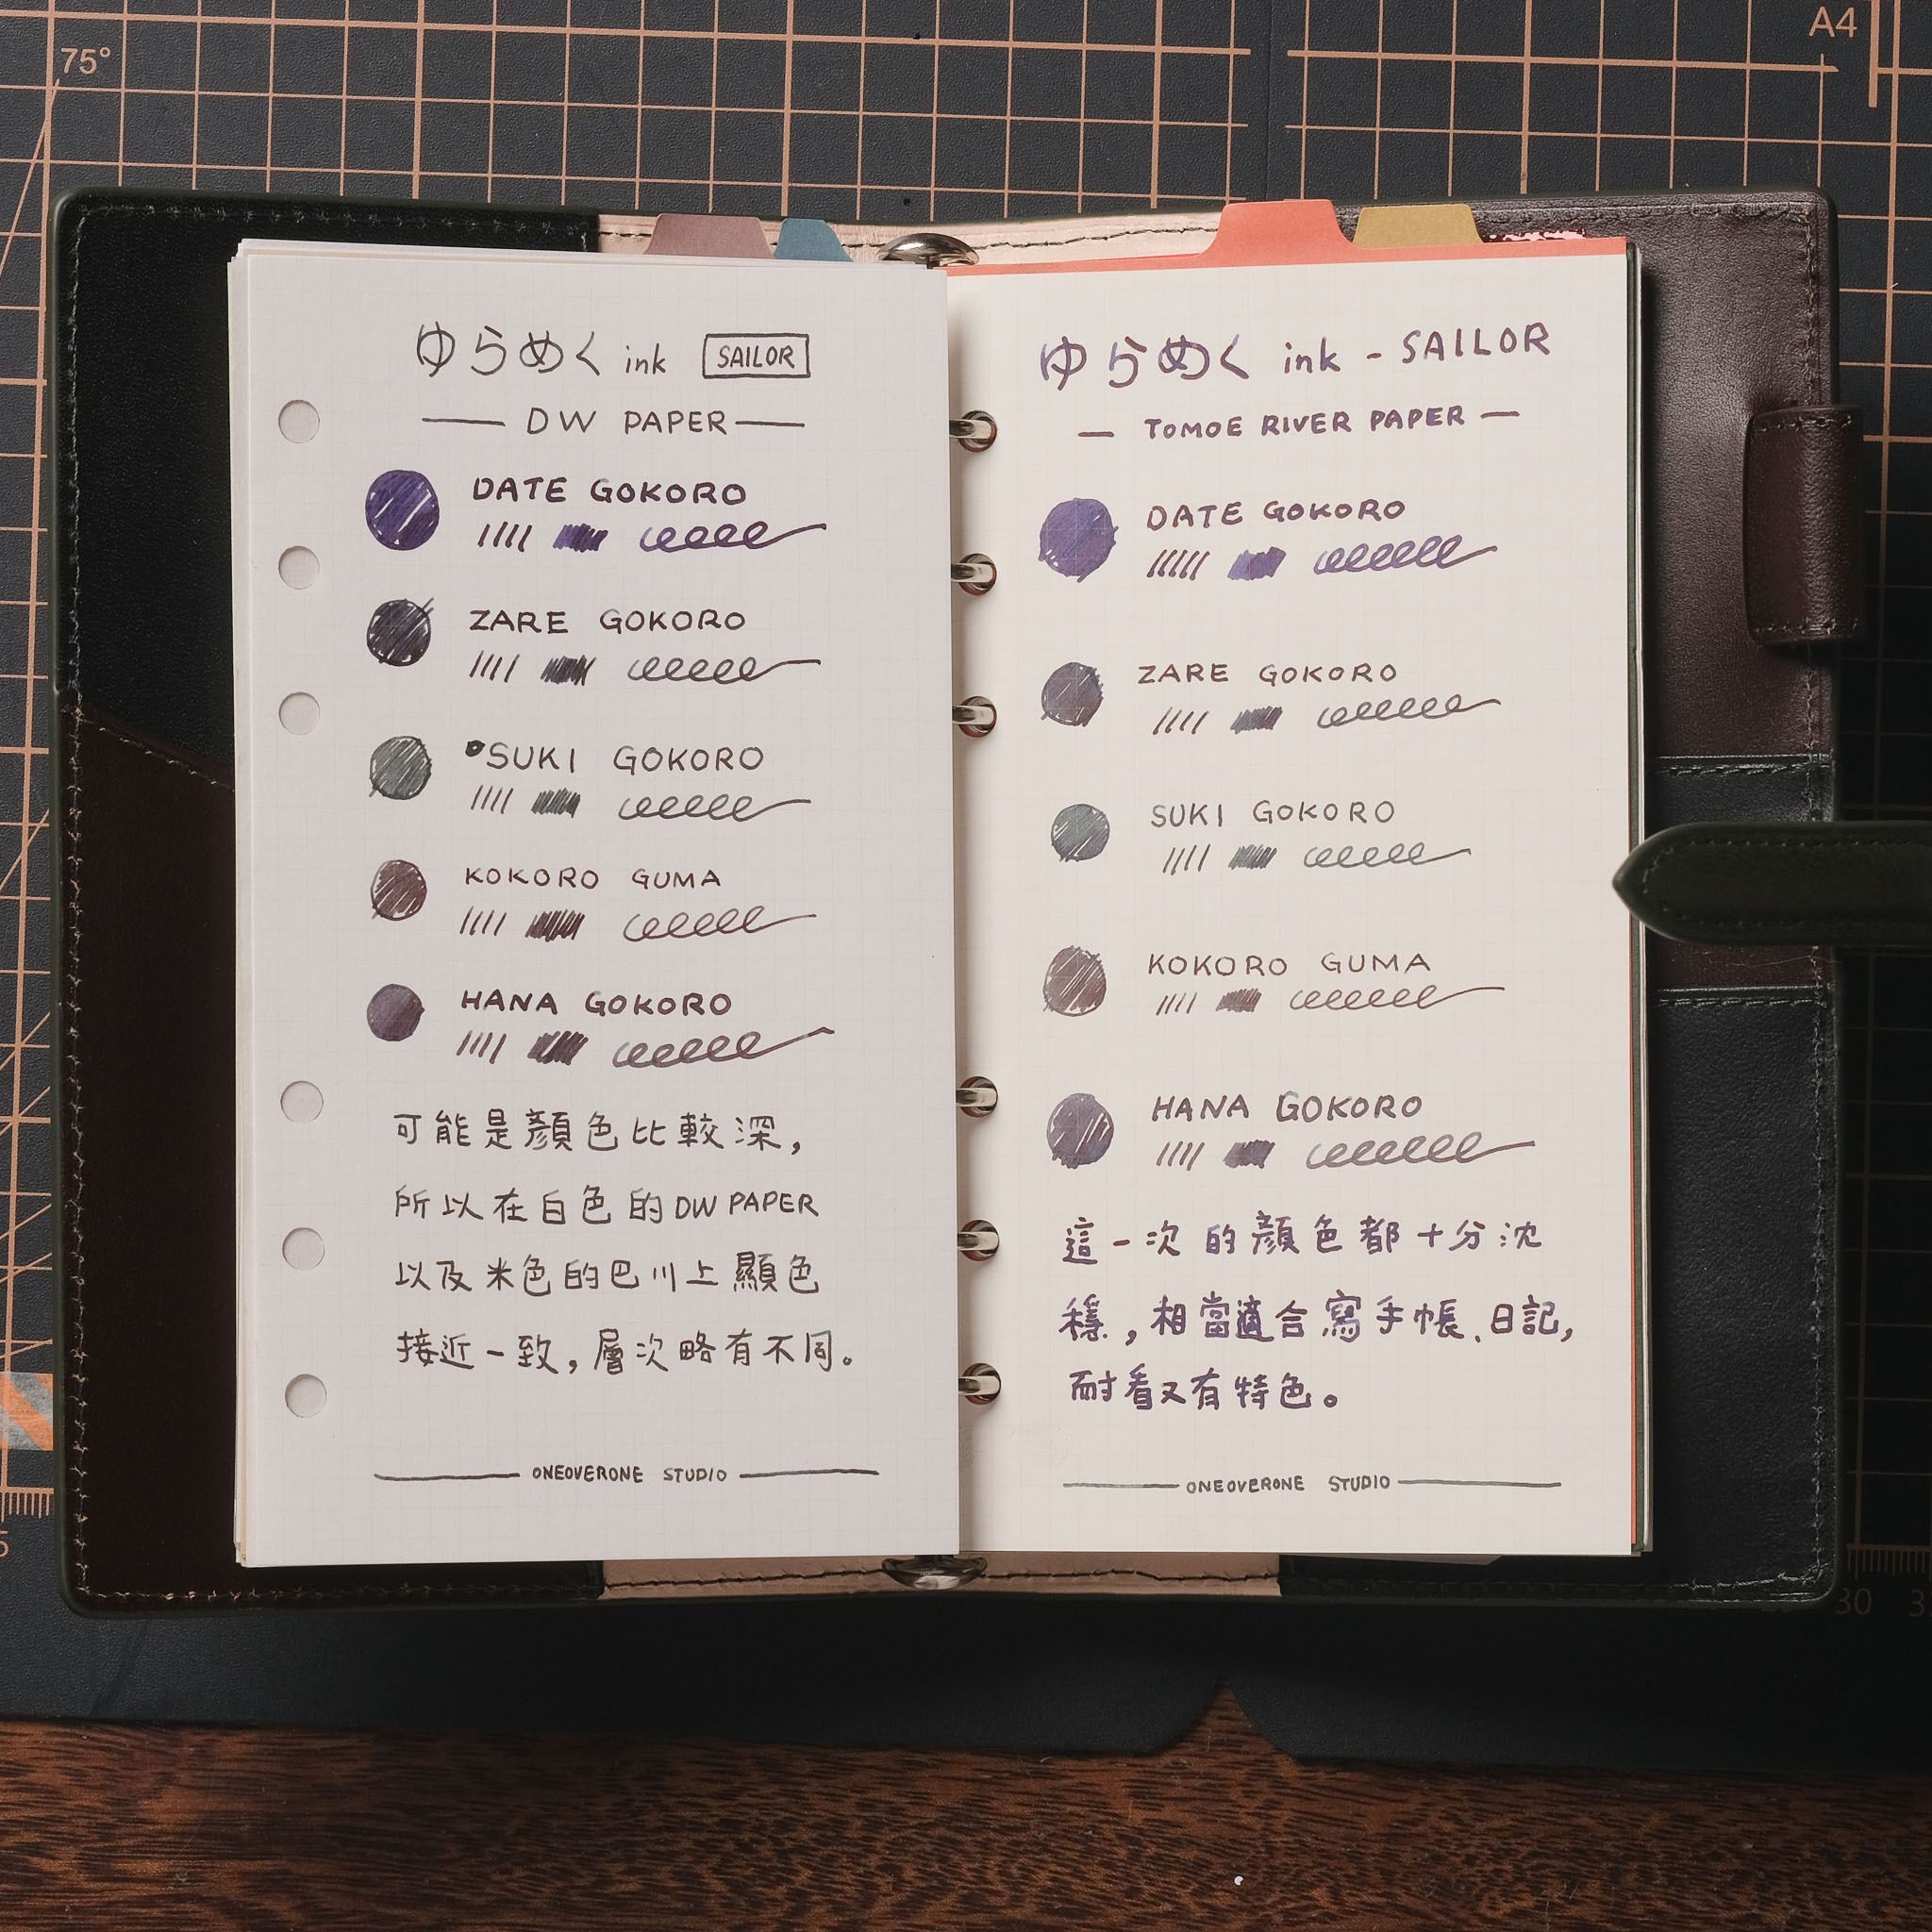 75°
A4
ゆらめく ink SAILOR
DW PAPER
DATE GOKORO
ZARE GOKORO
SUKI GOKORO
KOKORO GUMA
HANA GOKORO
可能是顏色比較深，
所以在白色的DW PAPER
以及米色的巴川上顯色
接近一致，層次略有不同。
ONEOVERONE STUDIO
ゆらめく ink - SAILOR
TOMOE RIVER PAPER
DATE GOKORO
ZARE GOKORO
SUKI GOKORO
KOKORO GUMA
HANA GOKORO
這一次的顏色都十分沈
穩，相當適合寫手帳、日記，
耐看又有特色。
ONEOVERONE STUDIO
30